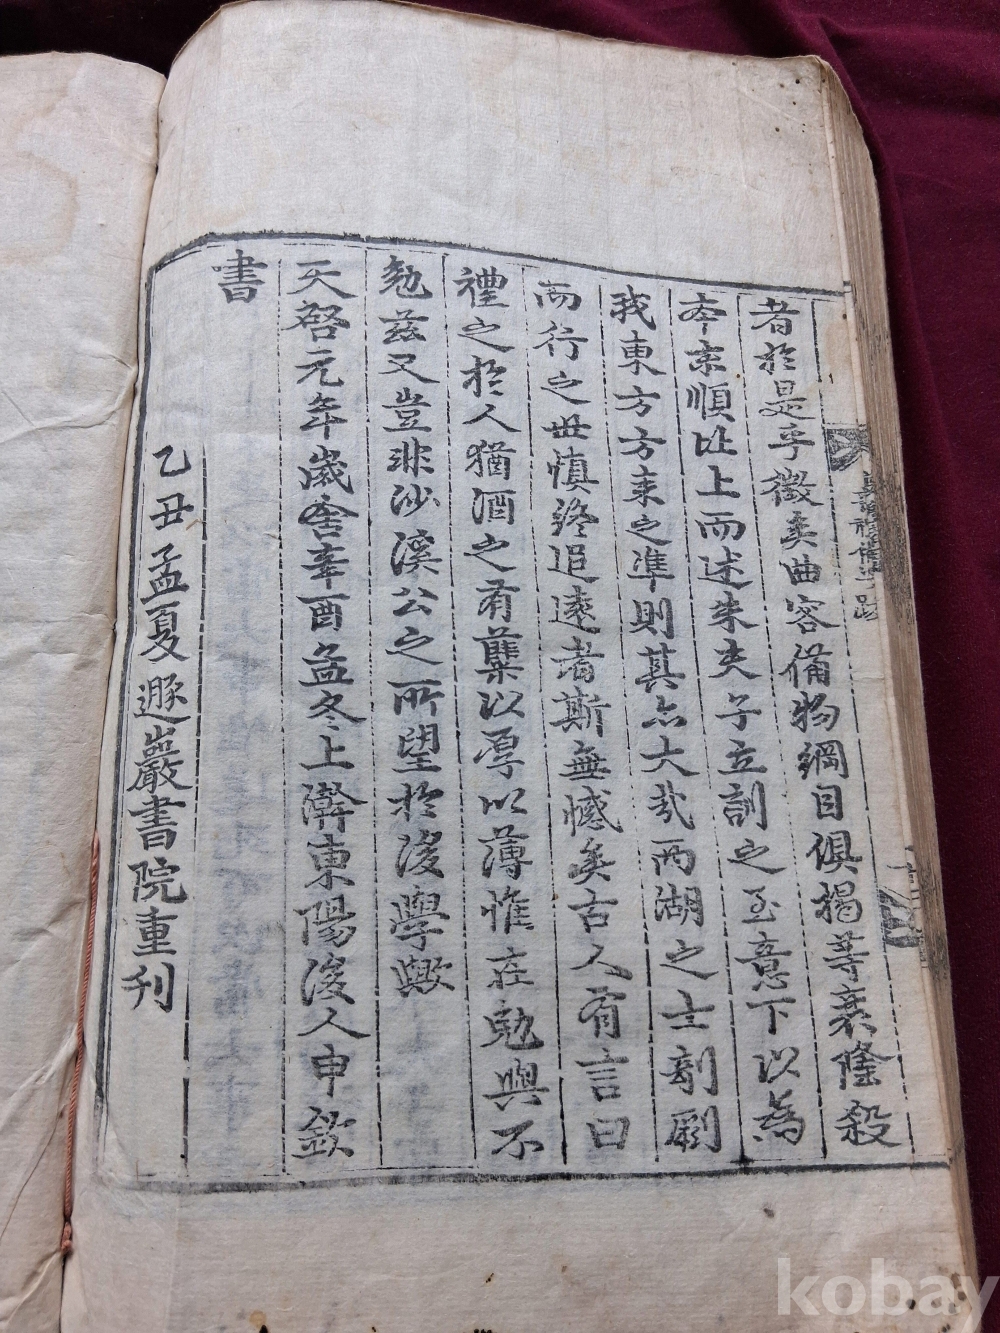 者於是乎徵矣曲容備物綱目俱揭等衰隆殺
本末順比上而述朱夫子立訓之至意下以為
我東方方來之準則其亦大哉兩湖之士剞劂
而行之毋慎終追遠者斯無憾矣古人有言曰
禮之於人猶酒之有糵以厚以薄惟在勉與不
勉茲又豈非沙溪公之所望於後學歟
天啓元年歲舍辛酉孟冬上澣東陽後人申欽
書
乙丑孟夏遯巖書院重刊
kobay